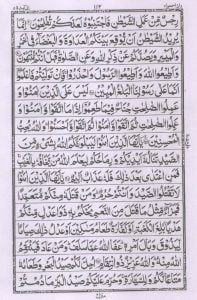 رِجْسٌ مِّنْ عَمَلِ الشَّيْطٰنِ فَاجْتَنِبُوْهُ لَعَلَّكُمْ تُفْلِحُوْنَ اِنَّمَا
يُرِيْدُ الشَّيْطٰنُ اَنْ يُّوْقِعَ بَيْنَكُمُ الْعَدَاوَةَ وَالْبَغْضَآءَ فِى الْخَمْرِ
وَالْمَيْسِرِ وَيَصُدَّكُمْ عَنْ ذِكْرِ اللّٰهِ وَعَنِ الصَّلٰوةِ فَهَلْ اَنْتُمْ مُّنْتَهُوْنَ
وَاَطِيْعُوا اللّٰهَ وَاَطِيْعُوا الرَّسُوْلَ وَاحْذَرُوْا فَاِنْ تَوَلَّيْتُمْ فَاعْلَمُوْٓا
اَنَّمَا عَلٰى رَسُوْلِنَا الْبَلٰغُ الْمُبِيْنُ لَيْسَ عَلَى الَّذِيْنَ اٰمَنُوْا وَ
عَمِلُوا الصّٰلِحٰتِ جُنَاحٌ فِيْمَا طَعِمُوْٓا اِذَا مَا اتَّقَوْا وَّاٰمَنُوْا وَ
عَمِلُوا الصّٰلِحٰتِ ثُمَّ اتَّقَوْا وَّاٰمَنُوْا ثُمَّ اتَّقَوْا وَّاَحْسَنُوْا وَاللّٰهُ يُحِبُّ
الْمُحْسِنِيْنَ يٰٓاَيُّهَا الَّذِيْنَ اٰمَنُوْا لَيَبْلُوَنَّكُمُ اللّٰهُ بِشَىْءٍ مِّنَ
الصَّيْدِ تَنَالُهٗٓ اَيْدِيْكُمْ وَرِمَاحُكُمْ لِيَعْلَمَ اللّٰهُ مَنْ يَّخَافُهٗ بِالْغَيْبِ
فَمَنِ اعْتَدٰى بَعْدَ ذٰلِكَ فَلَهٗ عَذَابٌ اَلِيْمٌ يٰٓاَيُّهَا الَّذِيْنَ اٰمَنُوْا
لَا تَقْتُلُوا الصَّيْدَ وَاَنْتُمْ حُرُمٌ وَمَنْ قَتَلَهٗ مِنْكُمْ مُّتَعَمِّدًا
فَجَزَآءٌ مِّثْلُ مَا قَتَلَ مِنَ النَّعَمِ يَحْكُمُ بِهٖ ذَوَا عَدْلٍ مِّنْكُمْ
هَدْيًۢا بٰلِغَ الْكَعْبَةِ اَوْ كَفَّارَةٌ طَعَامُ مَسٰكِيْنَ اَوْ عَدْلُ ذٰلِكَ صِيَامًا
لِّيَذُوْقَ وَبَالَ اَمْرِهٖ عَفَا اللّٰهُ عَمَّا سَلَفَ وَمَنْ عَادَ فَيَنْتَقِمُ
اللّٰهُ مِنْهُ وَاللّٰهُ عَزِيْزٌ ذُو انْتِقَامٍ اُحِلَّ لَكُمْ صَيْدُ الْبَحْرِ وَطَعَامُهٗ
مَتَاعًا لَّكُمْ وَلِلسَّيَّارَةِ وَحُرِّمَ عَلَيْكُمْ صَيْدُ الْبَرِّ مَا دُمْتُمْ